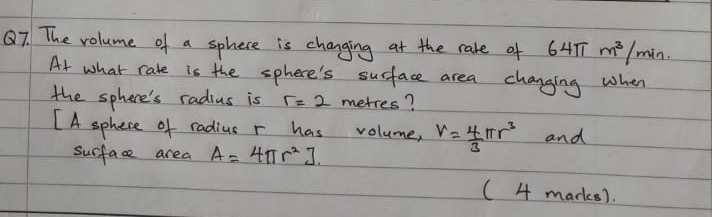 Q7. The volume of a sphere is changing at the rate of 64π m³/min.
At what rate is the sphere's surface area changing when
the sphere's radius is r = 2 metres?
[A sphere of radius r has volume, V = 4/3 πr³ and
surface area A = 4πr²].
(4 marks).